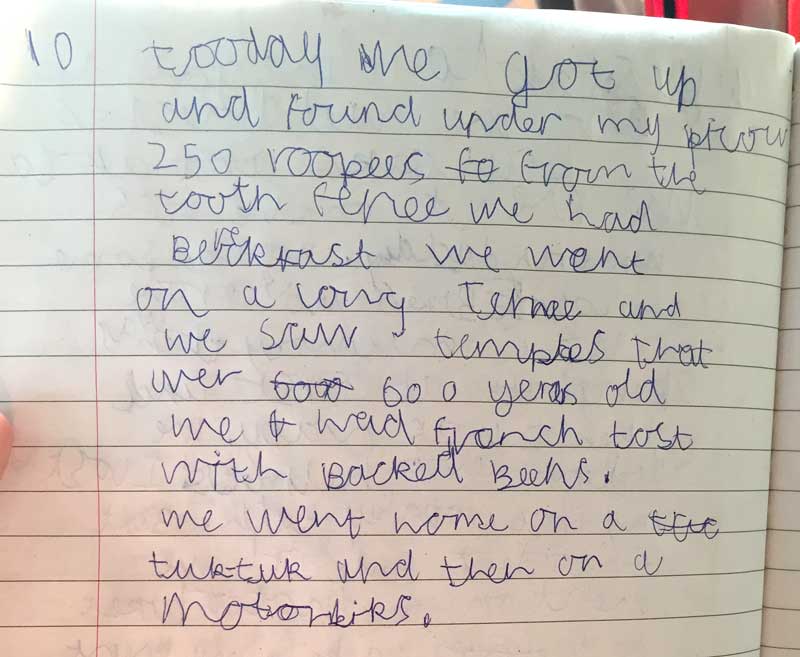 10 tooday we got up
and found under my picow
250 roopees from the
tooth feree we had
Berekfast we went
on a long Ternee and
we saw temples that
wer 600 yeras old
we had french tost
with Backed Beens.
we went home on a
tuktuk and then on a
Motorbiks.